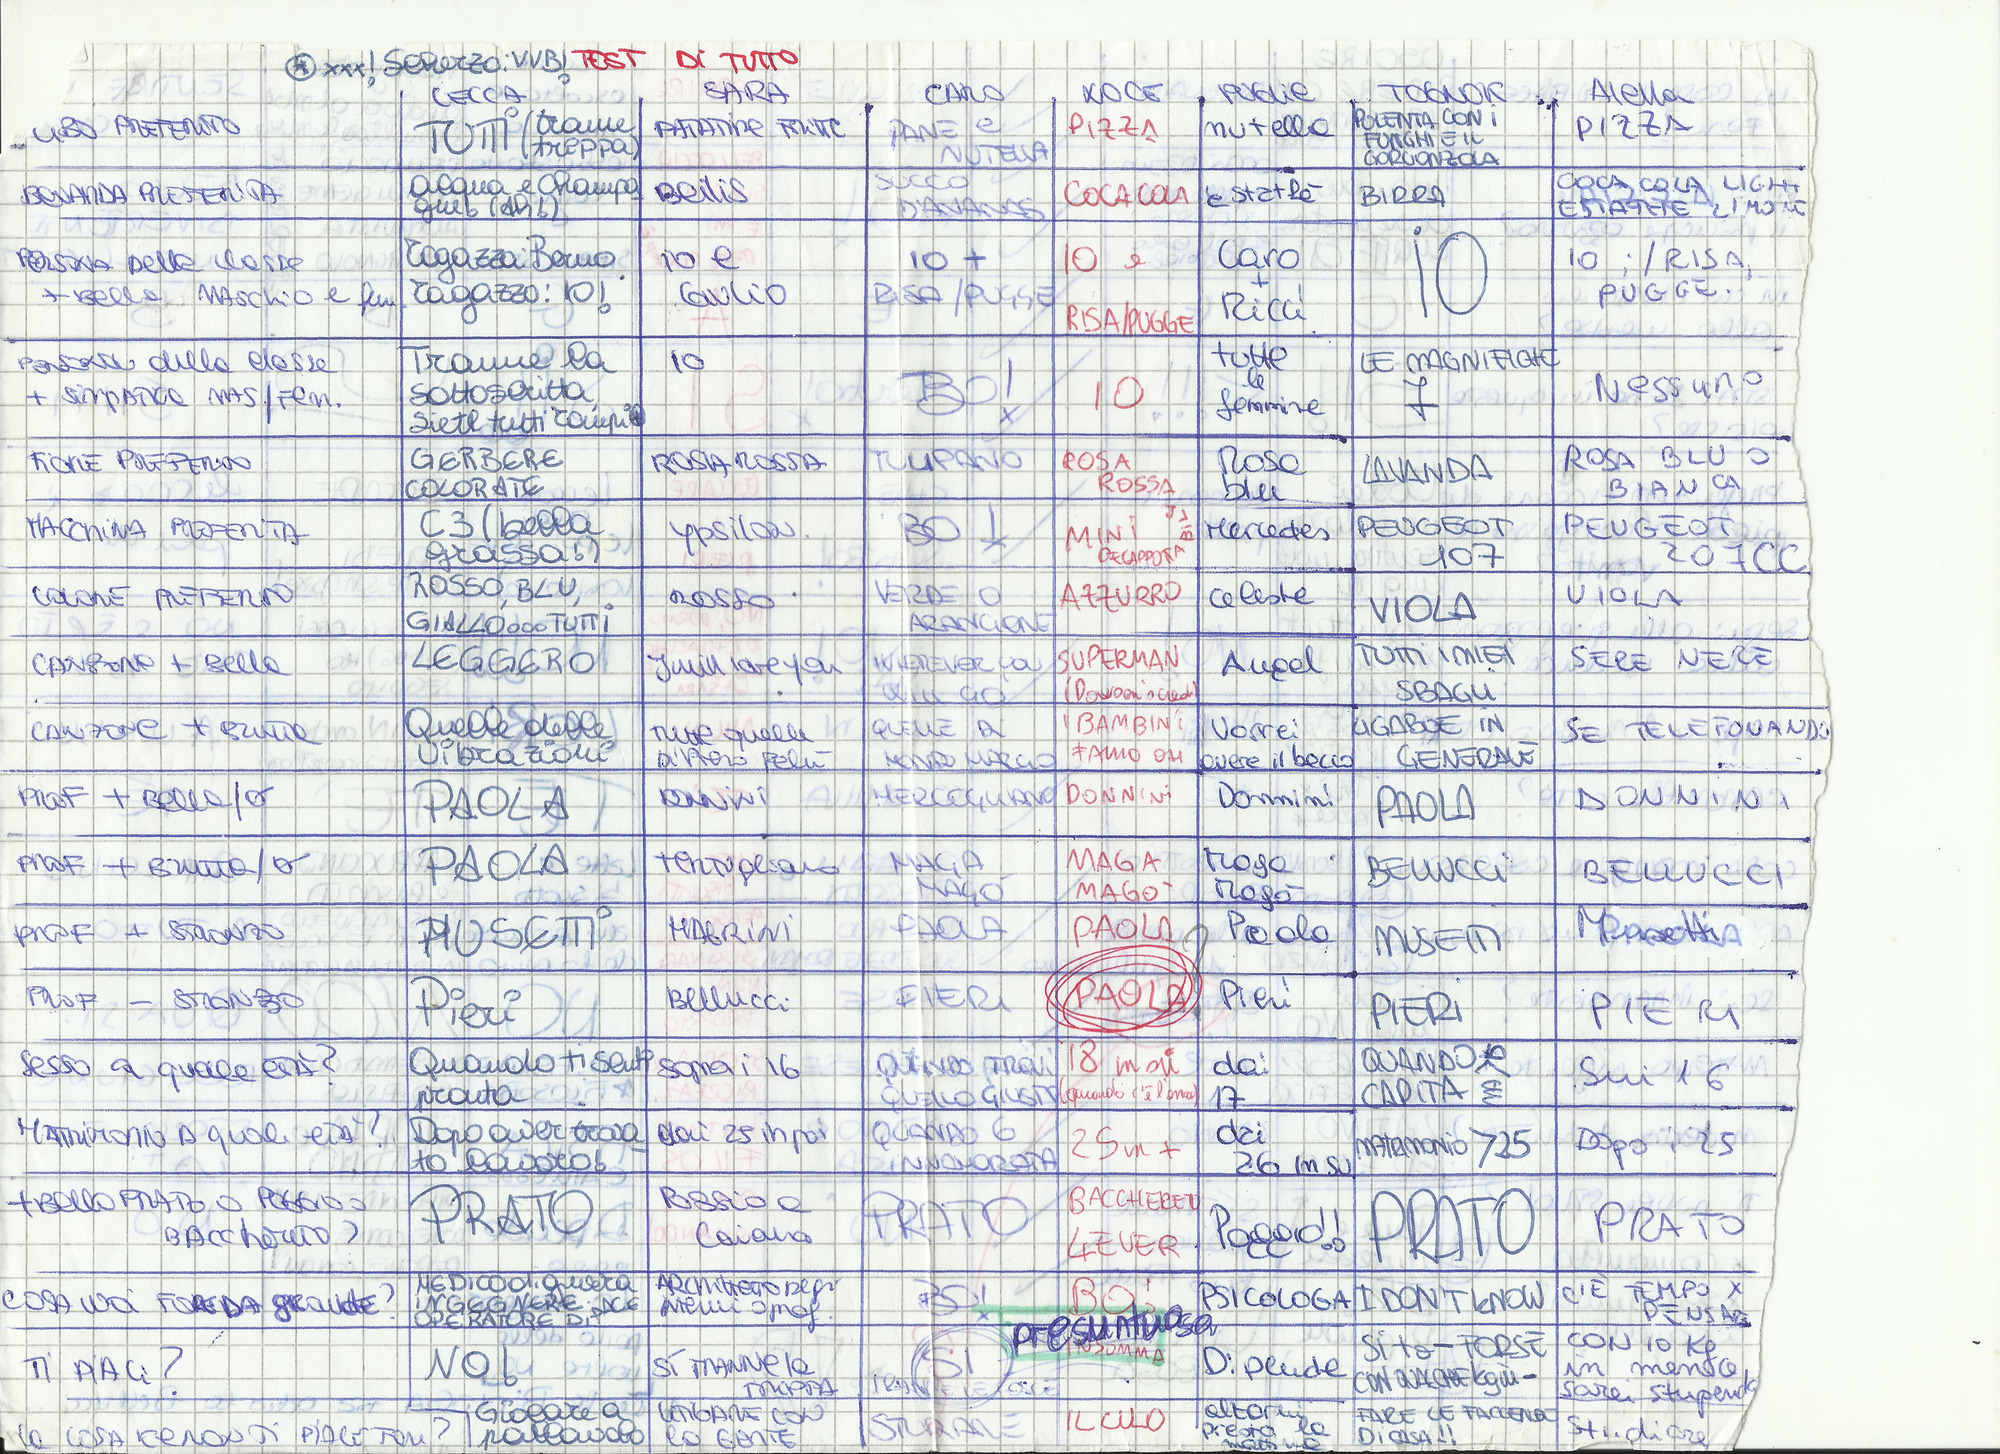 * xxx! Scherzo: VVB! TEST DI TUTTO
CECCA SARA CARO NOCE PUGLIE TOGNOK Alella
CIBO PREFERITO TUTTI (tranne treppa) PATATINE FRITTE PANE e NUTELLA PIZZA nutella POLENTA CON I FUNGHI E IL GORGONZOLA PIZZA
BEVANDA PREFERITA acqua e champa BEILIS SUCCO D'ANANAS COCA COLA estathè BIRRA COCA COLA LIGHT ESTATETE LIMONE
PERSONA Della classe + Bella MASCHIO e fem. ragazza: Berno. ragazzo: IO! IO e Giulio IO + RISA/PUGGE IO e RISA/PUGGE Caro + Ricci IO IO ; /RISA, PUGGE.
PERSONA della classe + SIMPATICA MAS./FEM. Tranne la sottoscritta, siete tutti IO BO! IO tutte le femmine LE MAGNIFICHE 7 Nessuno
FIORE PREFERITO GERBERE COLORATE ROSA ROSSA TULIPANO ROSA ROSSA Rosa blu LAVANDA ROSA BLU O BIANCA
MACCHINA PREFERITA C3 (bella grassa!) ypsilon. BO! MINI DECAPPOTTA Mercedes PEUGEOT 107 PEUGEOT 207CC
COLORE PREFERITO ROSSO, BLU, GIALLO... TUTTI ROSSO VERDE O ARANCIONE AZZURRO celeste VIOLA VIOLA
CANZONE + Bella LEGGERO WHEREVER you will GO SUPERMAN Angel TUTTI I MIEI SBAGLI SERE NERE
CANZONE + BRUTTA Quelle delle vibrazioni TUTTE quelle DI Piero Pelù QUELLE DI MONDO MARCIO I BAMBINI FANNO OH Vorrei avere il becco GIGABOE IN GENERALE SE TELEFONANDO
PROF + Bella/o PAOLA DONNINI DONNINI Donnini PAOLA DONNINI
PROF + BRUTTA/o PAOLA MAGA MAGÒ MAGA MAGÒ Maga Magò BELLUCCI BELLUCCI
PROF + STRONZO MUSETTI MABRINI PAOLA PAOLA Paola MUSETTI
PROF - STRONZO Pieri Bellucci PIERI PAOLA Pieri PIERI PIERI
SESSO a quale età? Quando ti senti pronta sopra i 16 QUANDO TROVI QUELLO GIUSTO 18 in su (quando c'è l'amore) dai 17 QUANDO CAPITA Sui 16
MATRIMONIO A quale età? Dopo aver trovato lavoro! dai 25 in poi QUANDO 6 INNAMORATA 25 in + dai 26 in su MATRIMONIO >25 Dopo i 25
+ BELLO PRATO O POGGIO O BACCHERETO? PRATO Poggio a Caiano PRATO BACCHERETO 4EVER Poggio!! PRATO PRATO
COSA VOI FARE DA grande? MEDICO di guerra INGEGNERE, ARCHITETTO BO! BO! PSICOLOGA I DON'T KNOW C'È TEMPO X PENSARE
presuntuosa
TI PIACI? NO! SÌ TRANNE la SI INSOMMA Dipende Si to- FORSE CON QUALCHE kg in - CON 10 Kg in meno sarei stupenda
la COSA KE NON TI PIACE FARE? Giocare a pallavolo LITIGARE CON la GENTE STUDIARE IL CULO alzarmi presto la mattina FARE LE FACCENDE DI CASA!! Studiare